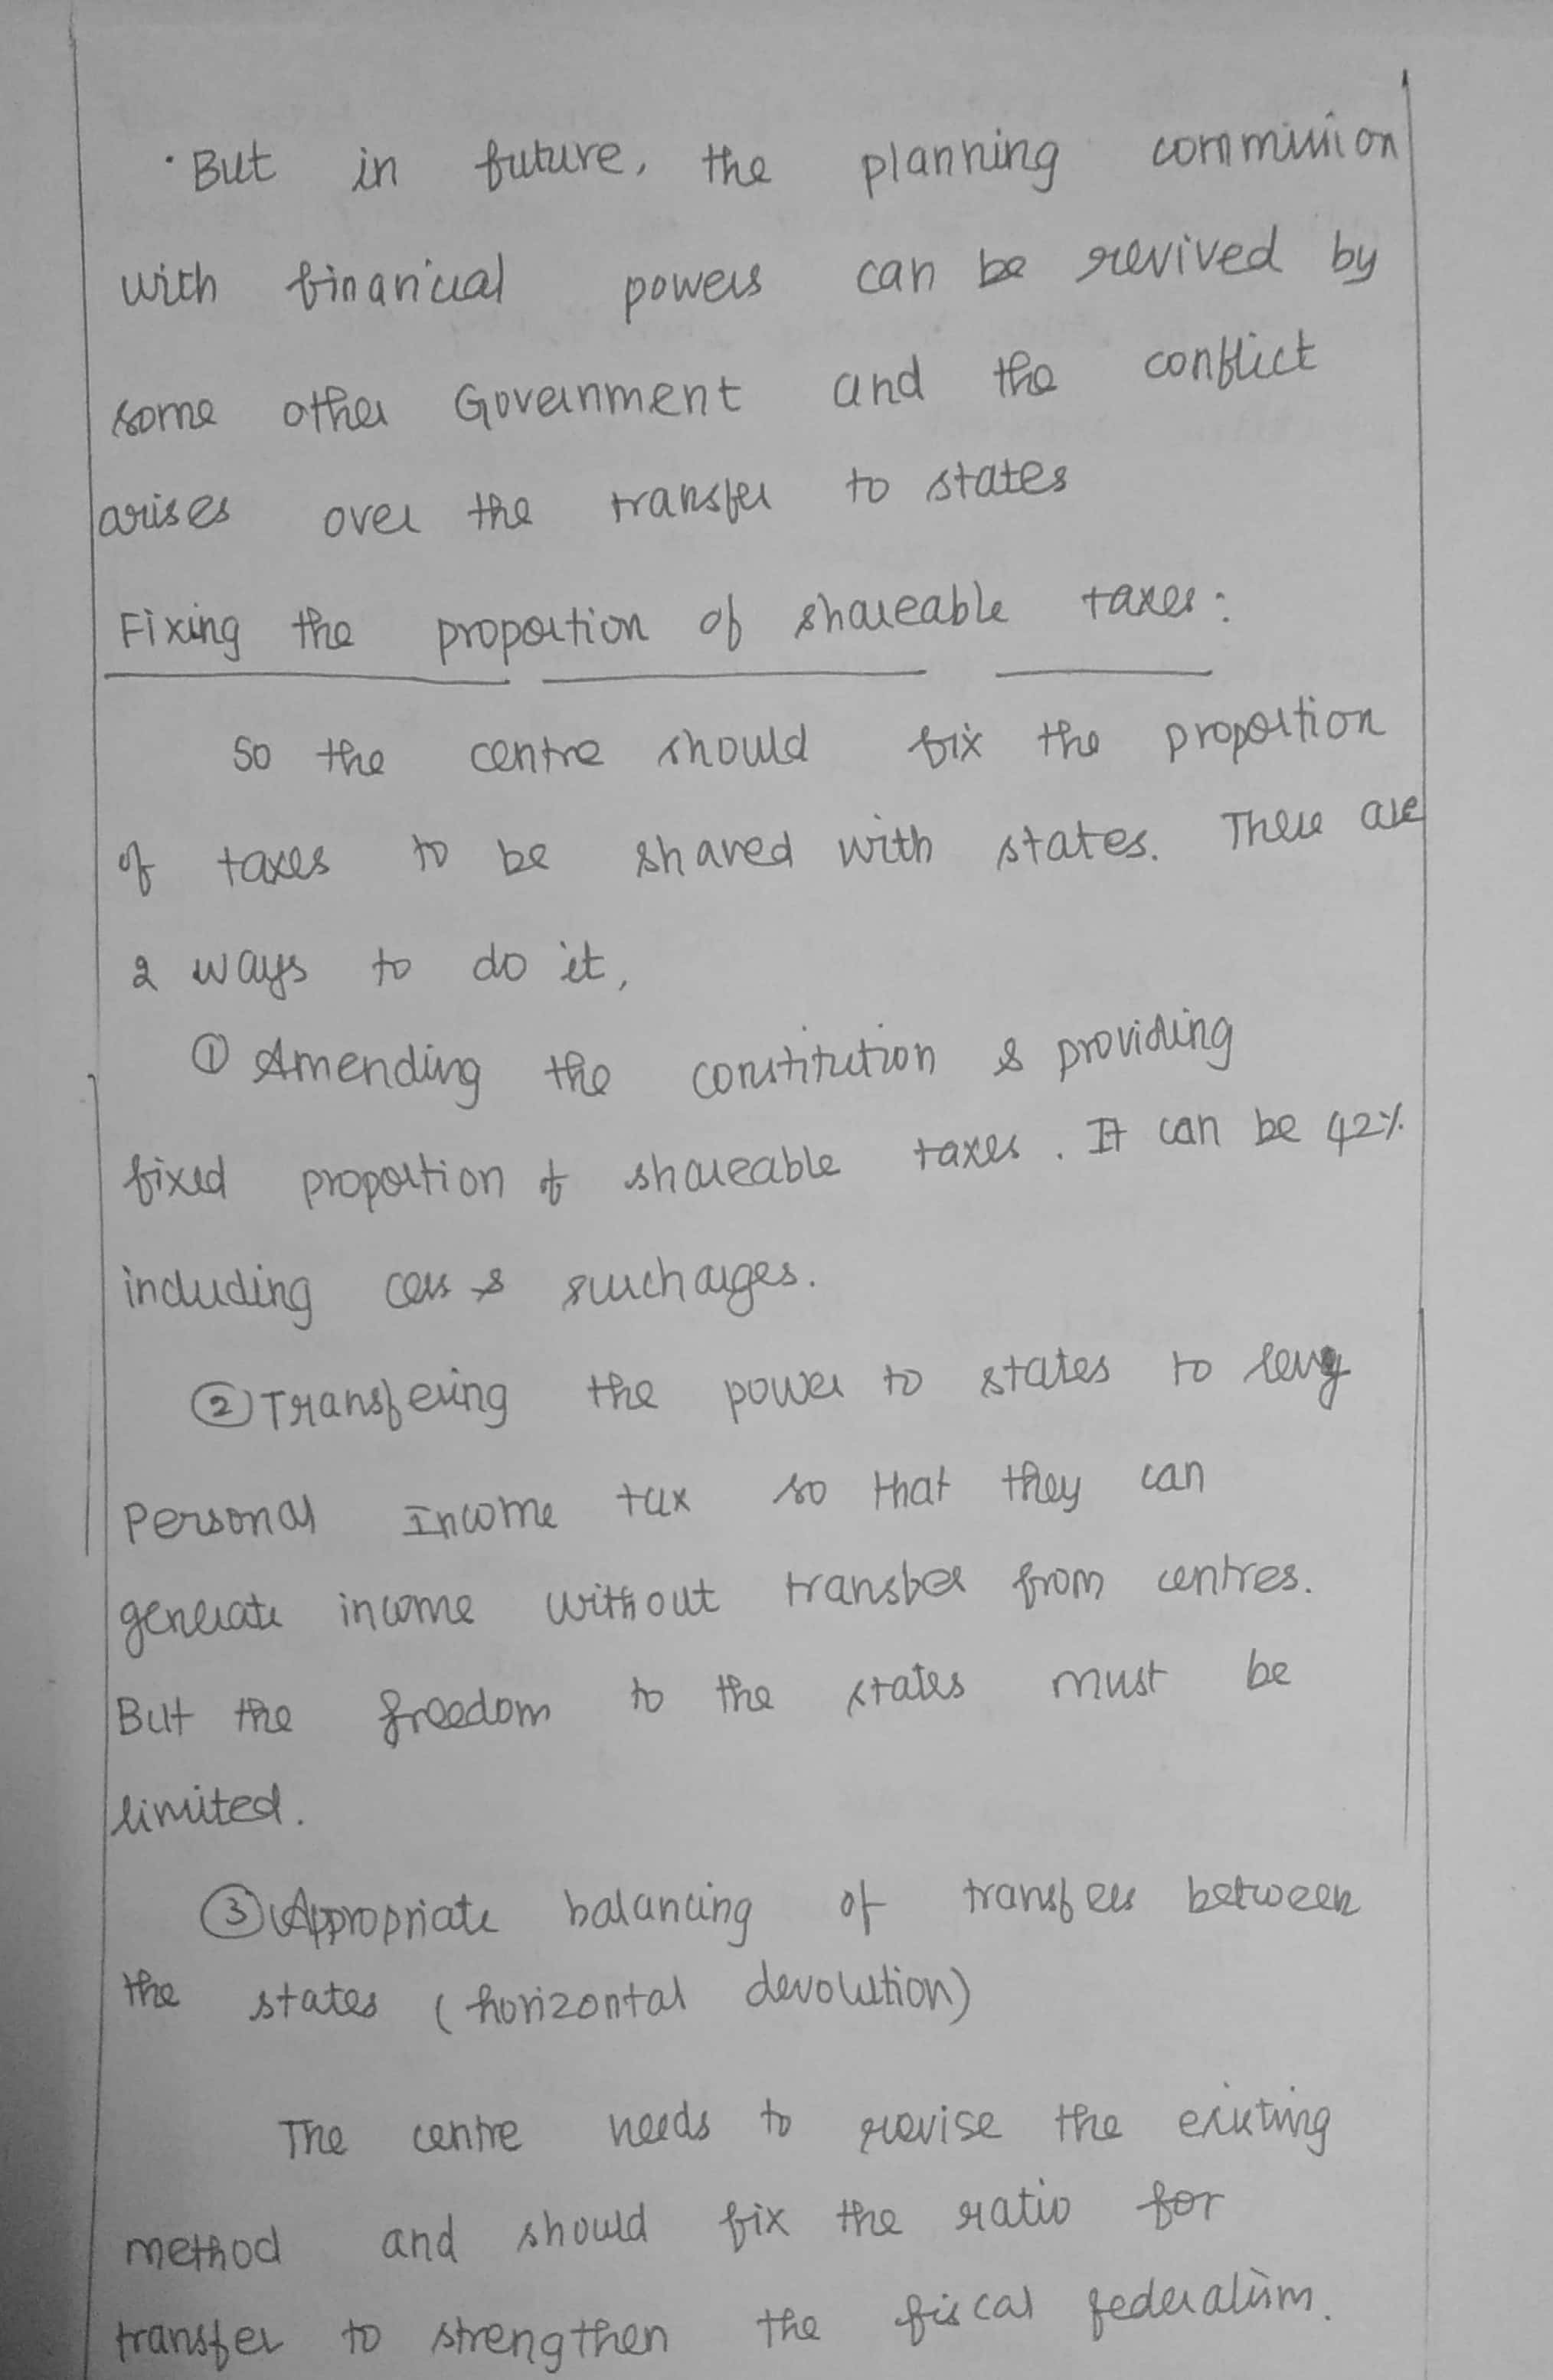 · But in future, the planning commission
with financial powers can be revived by
some other Government and the conflict
arises over the transfer to states
Fixing the proportion of shareable taxes:
So the centre should fix the proportion
of taxes to be shared with states. There are
2 ways to do it,
① Amending the constitution & providing
fixed proportion of shareable taxes. It can be 42%
including cess & surcharges.
② Transfering the power to states to levy
Personal Income tax so that they can
generate income without transfer from centres.
But the freedom to the states must be
limited.
③ Appropriate balancing of transfers between
the states (horizontal devolution)
The centre needs to revise the existing
method and should fix the ratio for
transfer to strengthen the fiscal federalism.